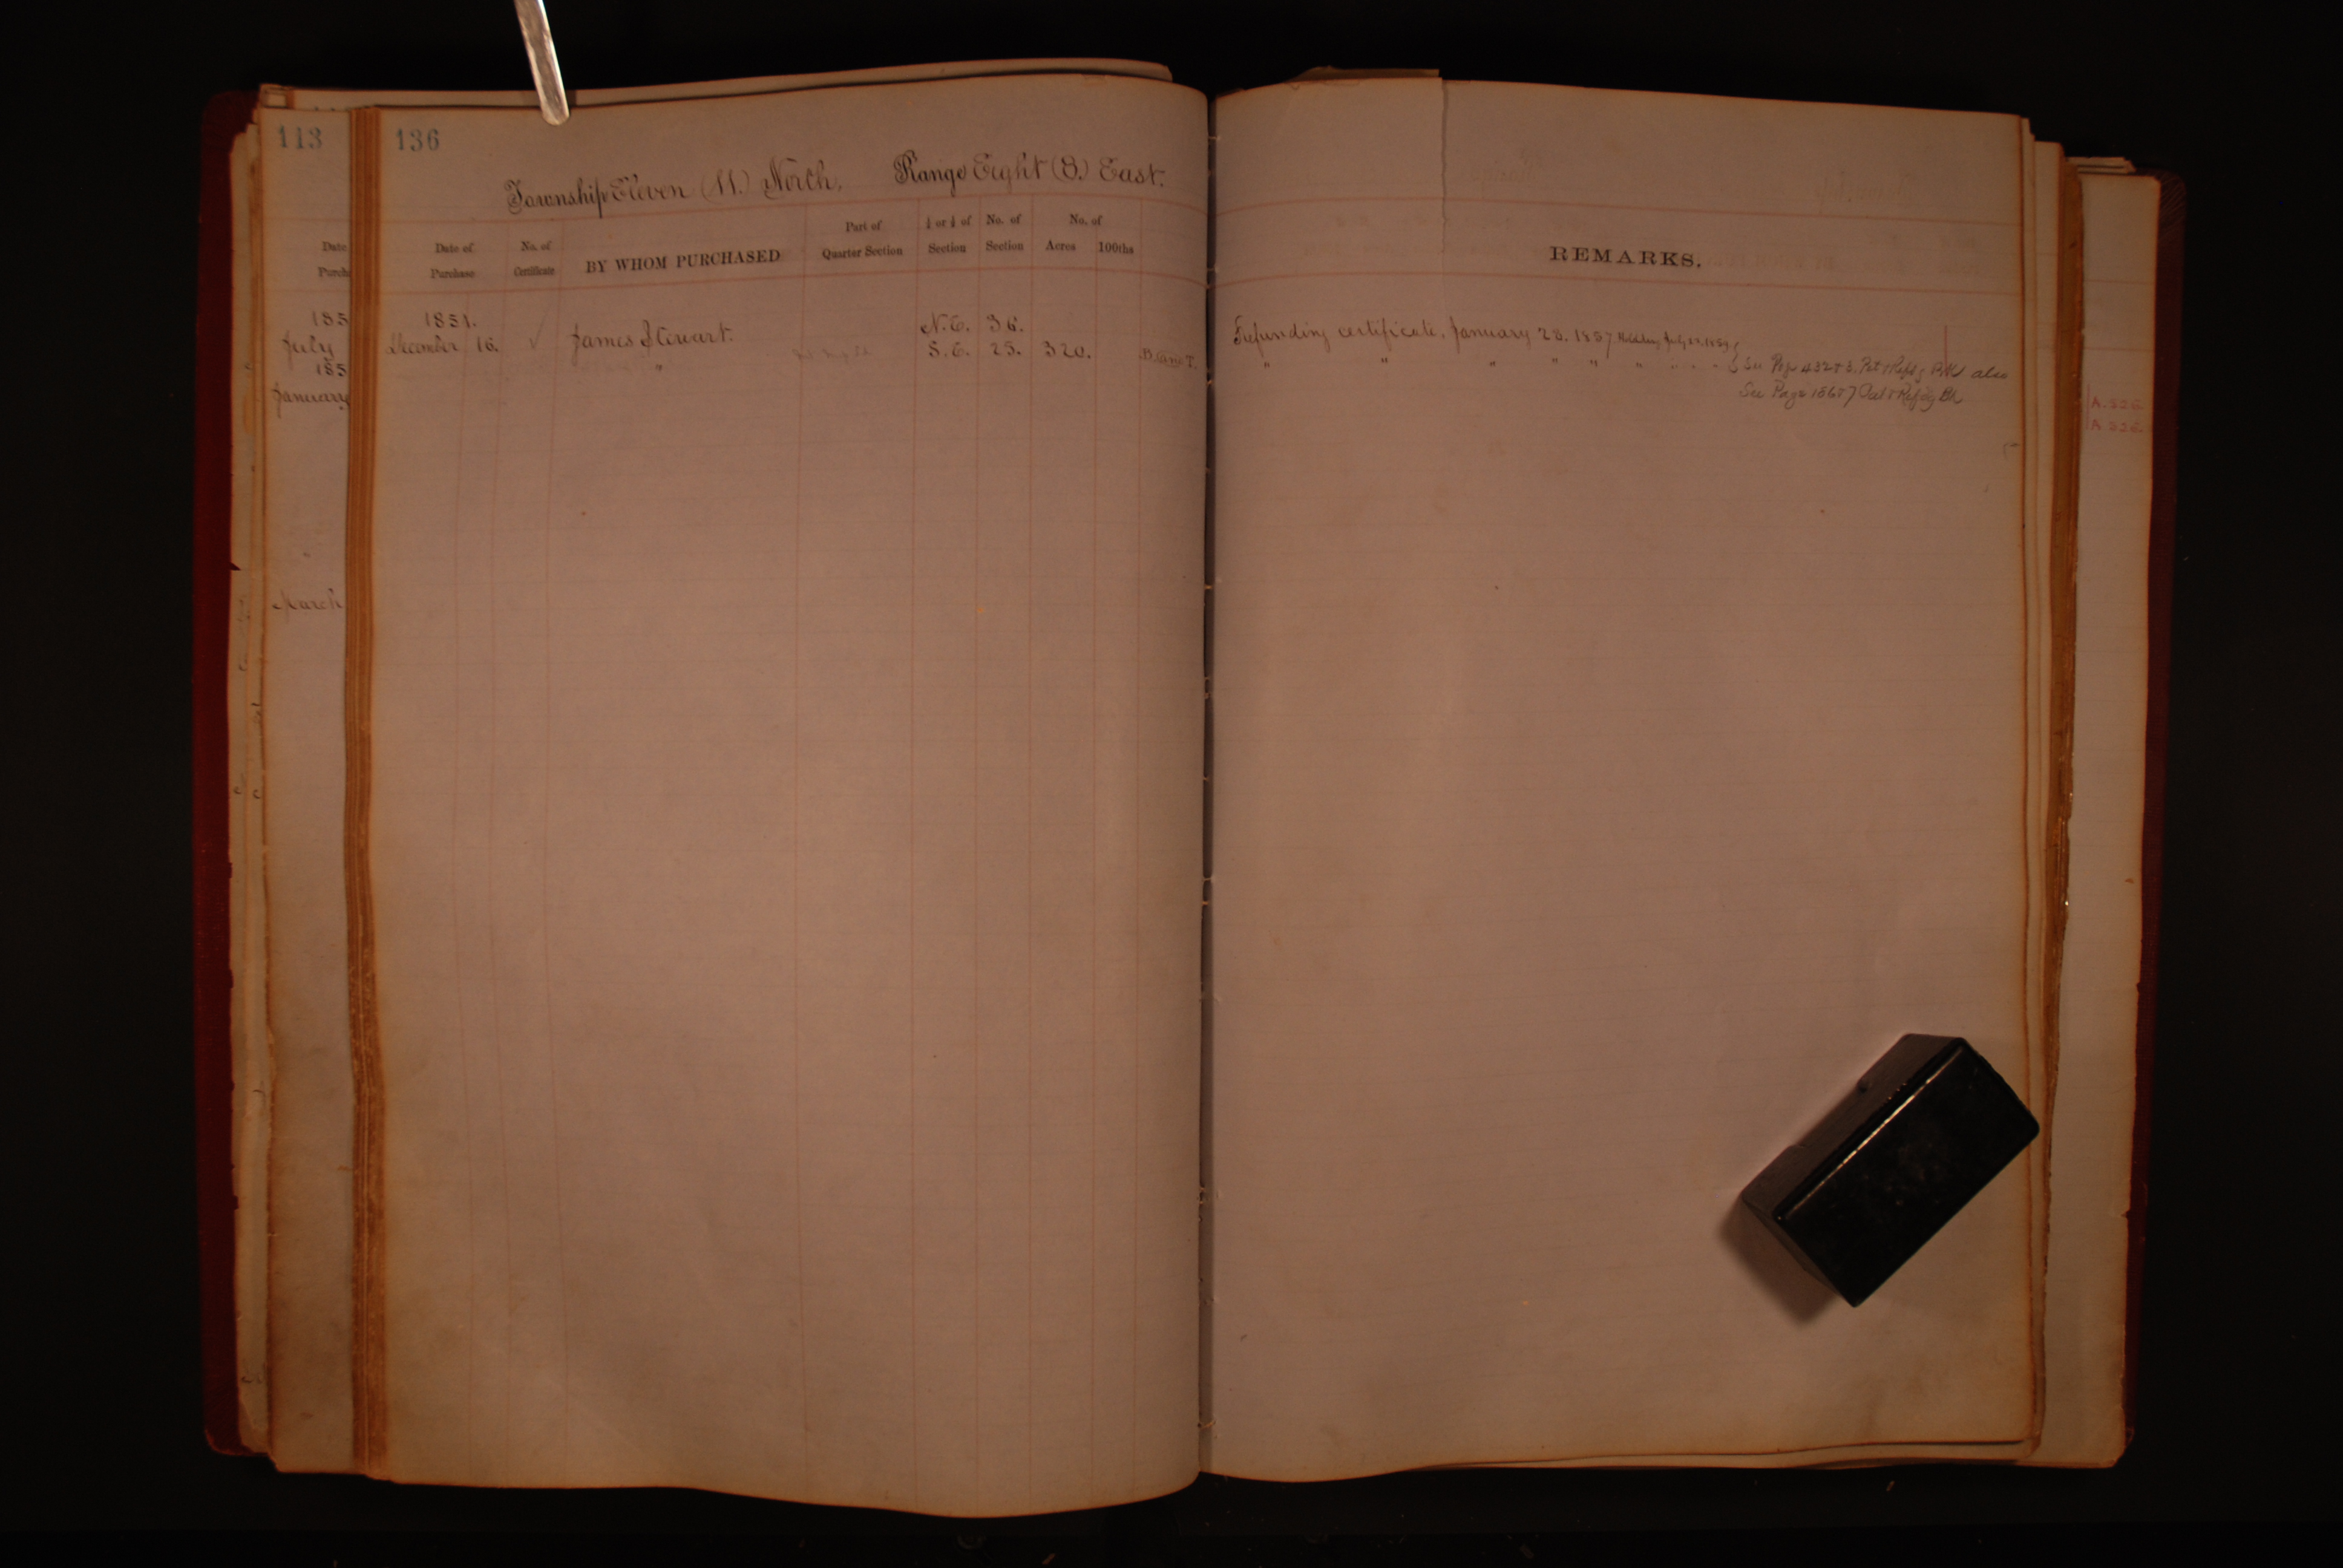 113
136
Township Eleven (11.) North, Range Eight (8.) East.
Date
Purch
Date of Purchase
No. of Certificate
BY WHOM PURCHASED
Part of Quarter Section
¼ or ½ of Section
No. of Section
No. of
Acres 100ths
REMARKS.
185
July
185
January
March
1851.
December 16. ✓ James Stewart. N.E. 36. Refunding certificate, January 28. 1857
" S.E. 25. 320. " " " " " " See Page 432 & 3. Pat & Refdg Bk also
See Page 156 & 7 Cat & Refdg Bk
A. 326.
A. 326.